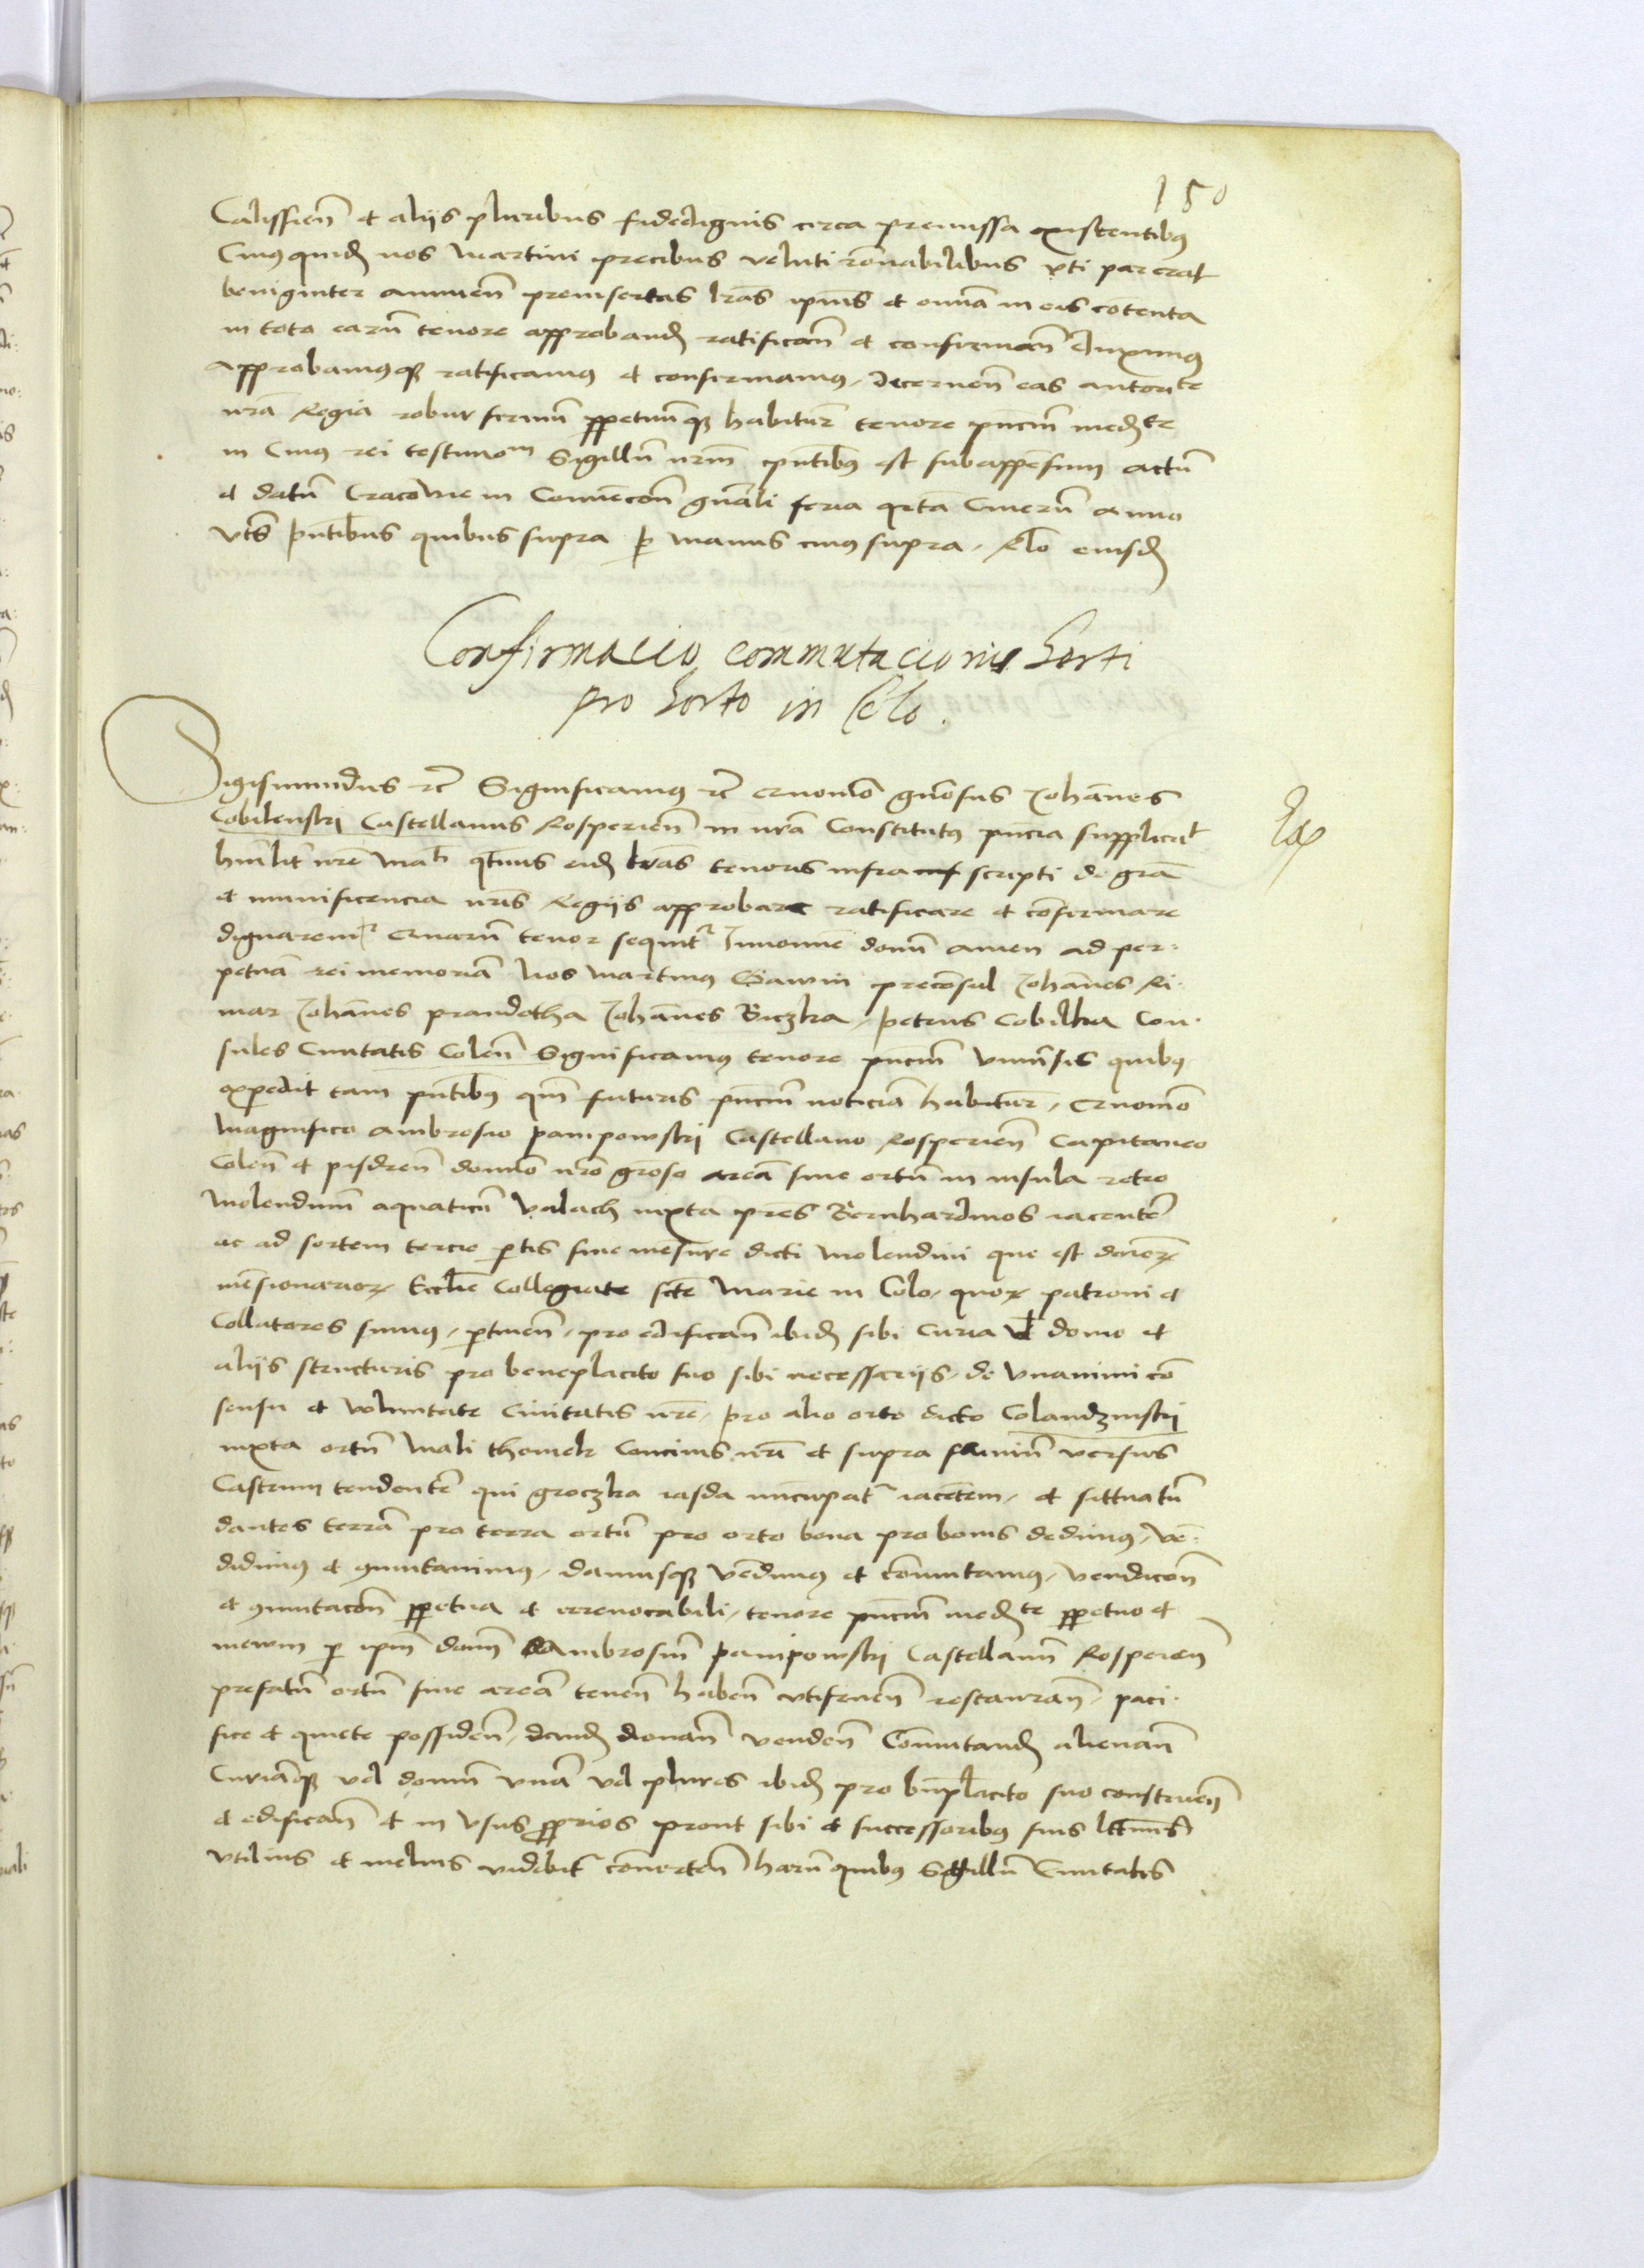 150
Calissien̄ et aliis pluribus fidedignis circa premissa existentibus
Cuius quidē nos Martini precibus veluti rōnabilibus vti par erat
benigniter annuen̄ preinsertas lrās ipius et omnia in eis cōtenta
in toto earū tenore approbandū ratifican̄ et confirman̄ duximus
Approbamusqʒ ratificamus et confirmamus, decernen̄ eas autoritte
nrā Regia robur firmū perpetuūqʒ habitur̄ tenore pn̄cium medte
in Cuius rei testimom Sigillū nrm̄ pn̄tibus est subappensum actū
et datū Cracovie in Convēcon̄ gn̄ali feria qrta Cinerū anno
vts pn̄tibus quibus supra per manus cuius supra. Rlō eiusdē
Confirmacio commutacionis horti
pro horto in Colo.
Sigismundus etc Significamus etc Quomō gn̄osus Johānes
Cobilenski Castellanus Rosperien̄ in nrā Constitutus pn̄cia supplicavit
humilit nrē Mati qtinus eidē lrās tenoris infra scripti de grā
et munificencia nris Regiis approbare ratificare et cōfirmare
dignaremur Quarū tenor sequitr In nomine domi amen ad per-
petuā rei memoriā Nos Martinus Gawin precōsul Johānes Ri-
mar Johānes prandotha Johānes Biczka, Petrus Cobilka Con-
sules Civitatis Colen̄ Significamus tenore pn̄cium vniversis quibus
expedit tam pn̄tibus qm̄ futuris pn̄cium noticiā habitur̄, Quomō
Magnifico Ambrosio Pampowski Castellano Rosperien̄ Capitaneo
Colen̄ et pisdren̄ domino nrō grōso areā sive ortū in insula retro
Molendinū aquaticū Valach iuxta pres Bernhardinos iacentē
ac ad sortem tercie ptis sive mēsure dicti molendini que est dnōrʒ
mēsionariorʒ Ecclīe Collegiate scte Marie in Colo, quorʒ patroni et
Collatores sumus, ptinen̄, pro edifican̄ ibidē sibi Curia vel domo et
aliis structuris pro beneplacito suo sibi necessariis, de vnanimi cō
sensu et voluntate Civitatis nrē, pro alio orto dicto Colandzinskij
iuxta ortū Mali thomek Concivis nrī et supra fluviū versus
Castrum tendentē qui groczka iasda nūcupatr iacētem, et sittuatū
dantes terrā pro terra ortū pro orto bona pro bonis dedimus, vē-
didimus et 9mutavimus, damusqʒ vēdimus et cōmutamus, vendicon̄
et 9mutacon̄ perpetua et irrevocabili, tenore pn̄cium medte perpetuo et
inevum per ipm̄ dnm̄ Ambrosiū Pampowski Castellanū Rosperien̄
prefatū ortū sive areā tenen̄ haben̄ vtifruen̄ restauran̄, paci-
fice et quiete possiden̄, dandū donan̄ venden̄ Cōmutandū alienan̄
Curiāqʒ vel domū vnā vel plures ibidē pro bn̄placito suo construen̄
et edifican̄ et in vsus pprios prout sibi et successoribus suis lttimis
vtilius et melius videbitr cōverten̄ harū quibus Sigillū Civitatis